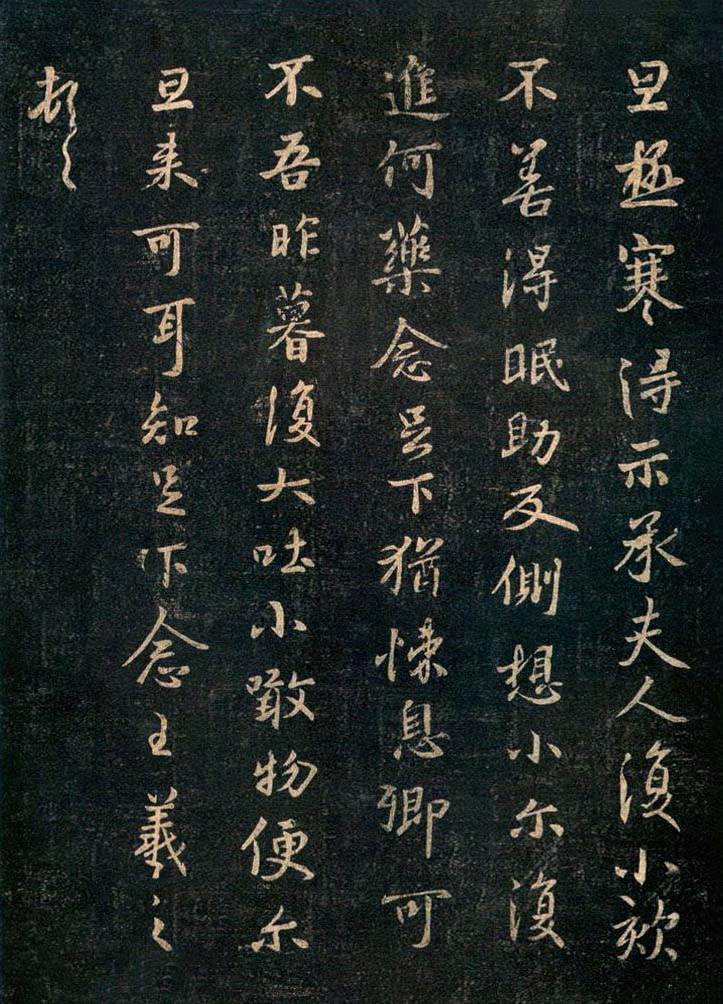 旦極寒得示承夫人復小欬
不善得眠助反側想小尓復
進何藥念足下猶悚息卿可
不吾昨暮復大吐小噉物便尓
旦来可耳知足下念王羲之
頓首